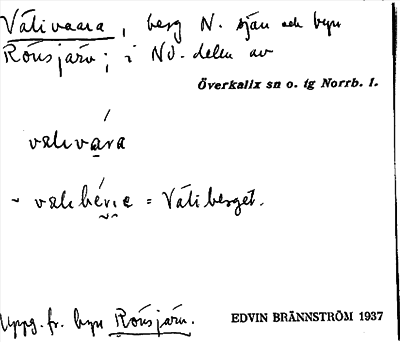 Välivaara, berg N. sjön och byn
Rönsjärv; i NO. delen av
Överkalix sn o. tg Norrb. l.
= Väliberget.
Uppg. fr. byn Rönsjärv.
EDVIN BRÄNNSTRÖM 1937